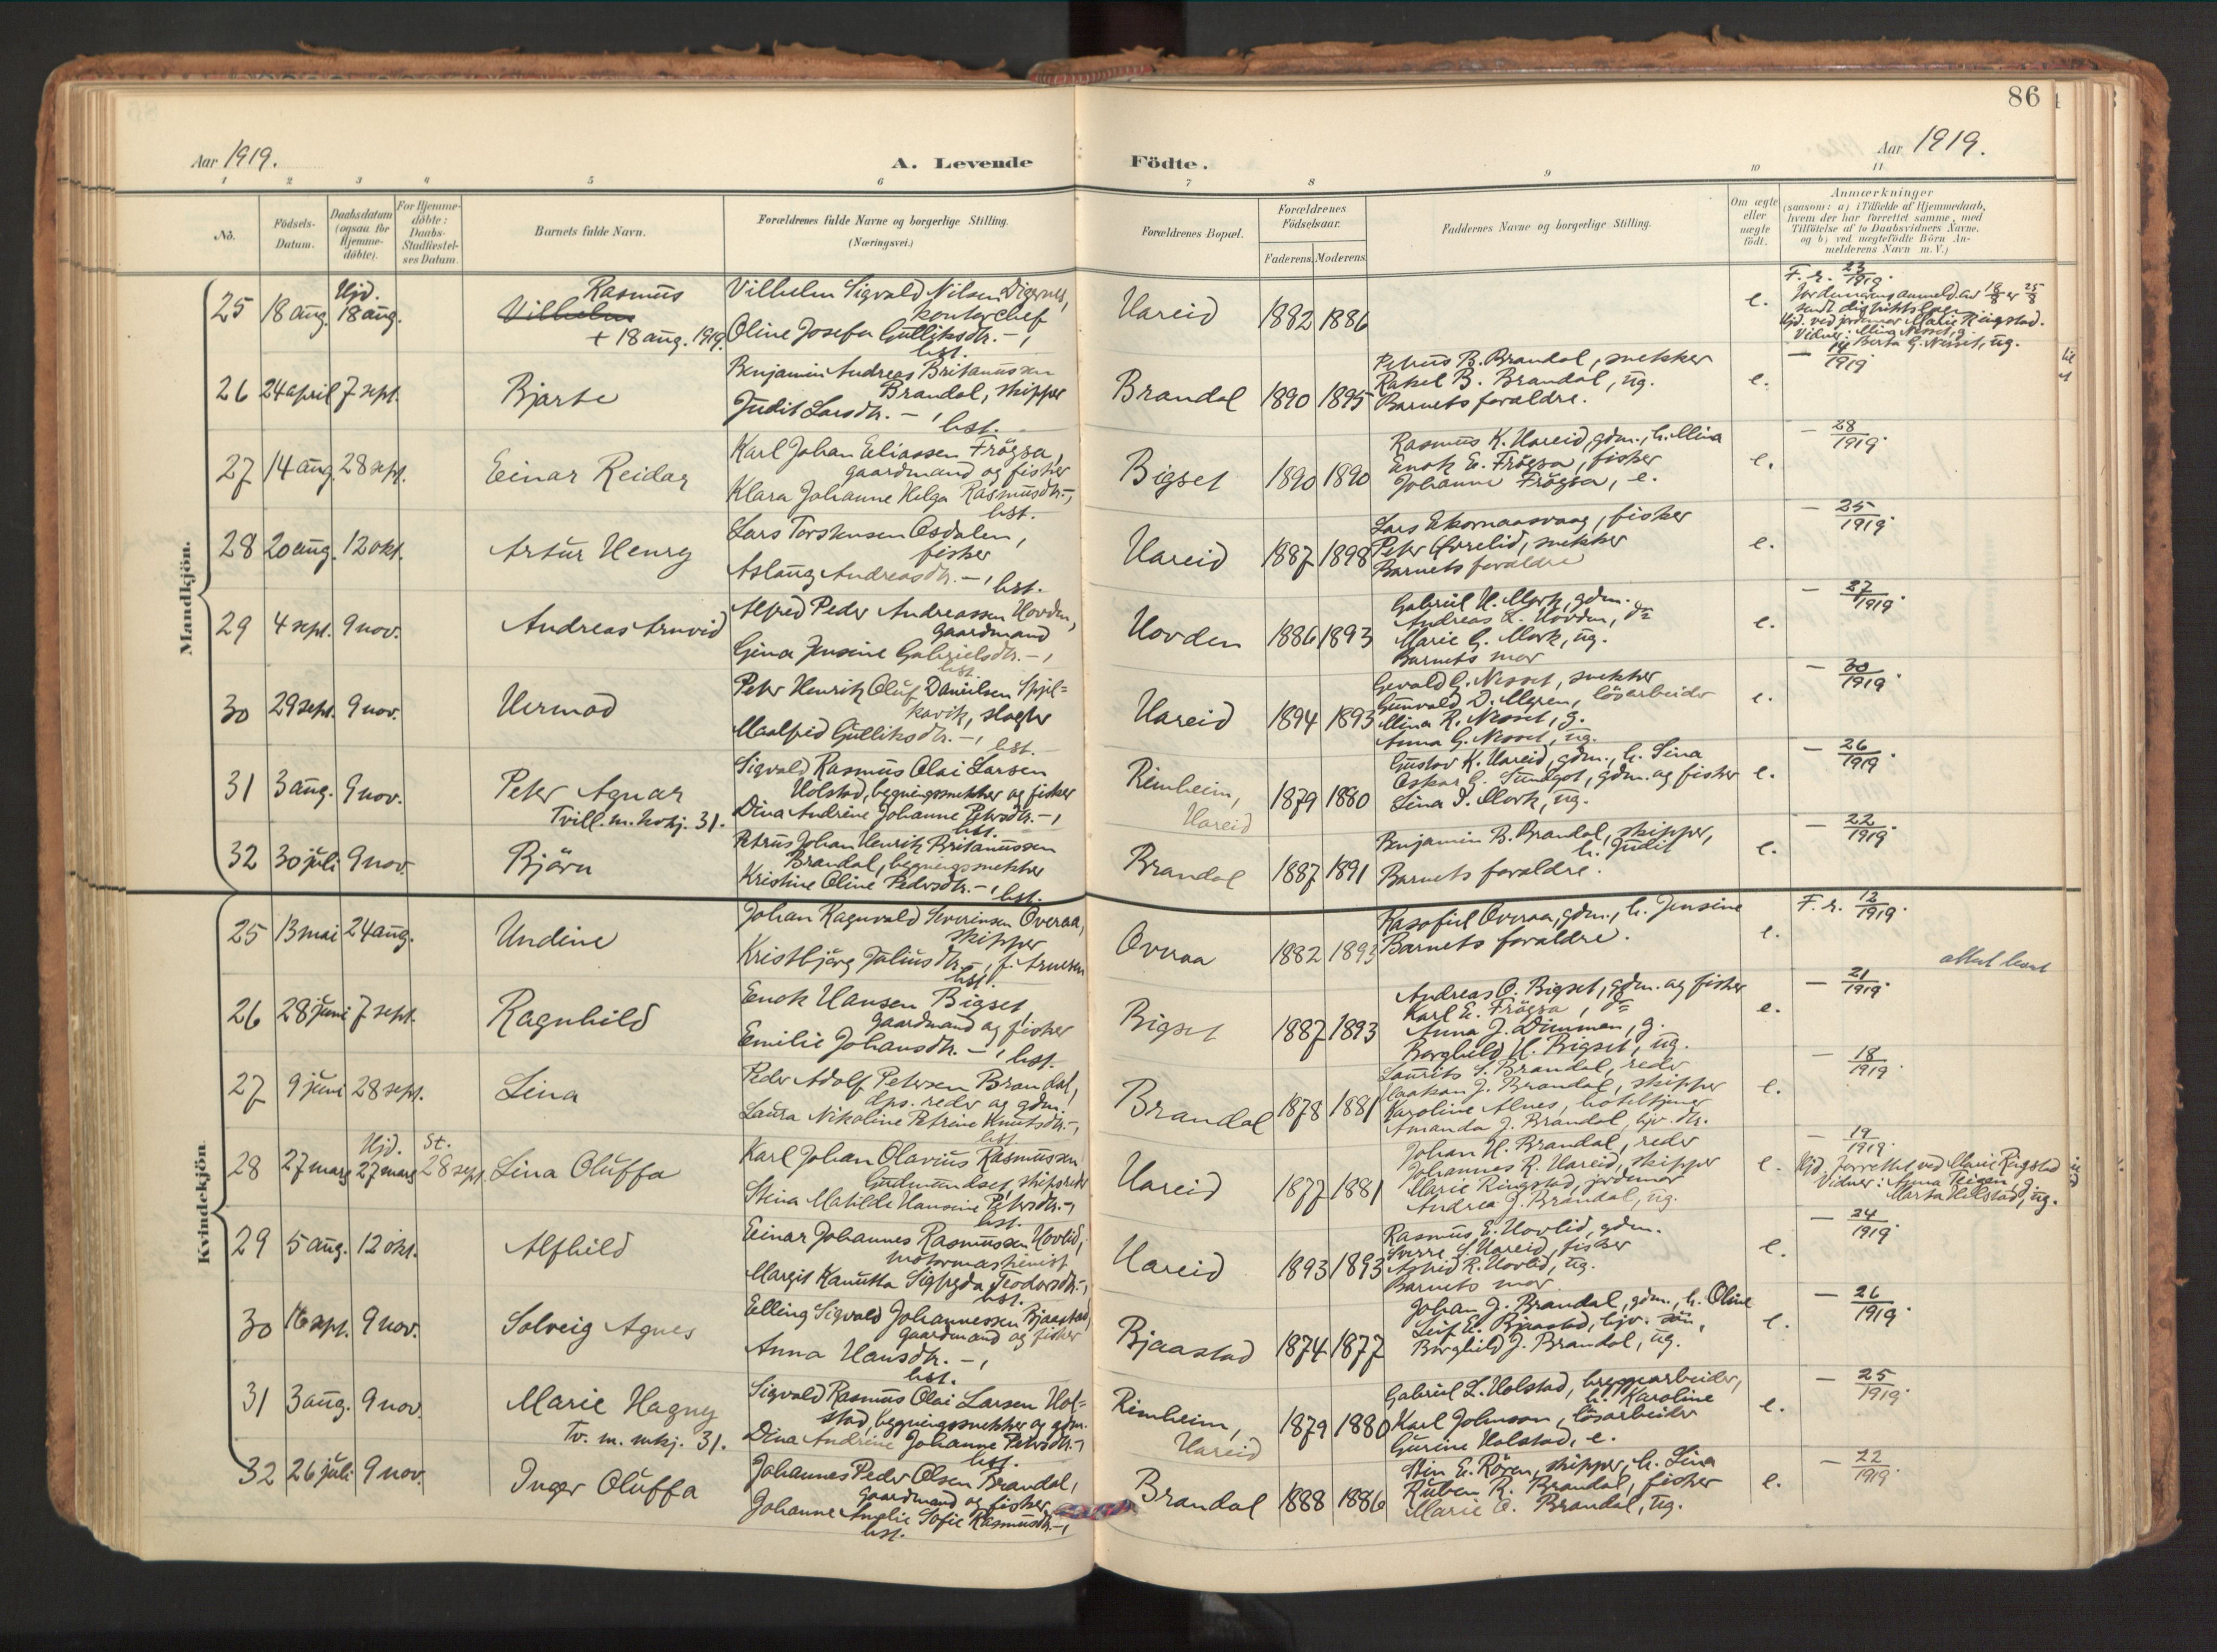 86
Aar 1919.
A. Levende Födte.
Aar 1919.
1 2 3 4 5 6 7 8 9 10 11
No.
Födsels-Datum.
Daabsdatum (ogsaa for Hjemme-döbte).
For Hjemme-döbte: Daabs-Stadfæstel-ses Datum.
Barnets fulde Navn.
Forældrenes fulde Navne og borgerlige Stilling.
(Næringsvei.)
Forældrenes Bopæl.
Forældrenes Födselsaar.
Faderens. Moderens.
Faddernes Navne og borgerlige Stilling.
Om ægte eller uægte födt.
Anmærkninger
(saasom: a) i Tilfælde af Hjemmedaab,
hvem der har forrettet samme, med
Tilföielse af to Daabsvidners Navne,
og b) ved uægtefödte Börn An-
melderens Navn m. V.)
Mandkjön.
25 18 aug. Hjd. 18 aug. Rasmus
Vilhelm
+ 18 aug. 1919.
Vilhelm Sigvald Nilsen Digernes,
kontorchef
Oline Josefa Gulliksdtr. —,
hst.
Hareid 1882 1886 e.
F. r. 23/1919.
Hjd. ved jordmor Marie Ringstad.
Vidner: Mina Nesset, g.
Berta G. Nesset, ug.
26 24 april 7 sept. Bjarte
Benjamin Andreas Britanussen
Brandal, skipper
Judit Larsdtr. —, hst.
Brandal 1890 1895
Petrus B. Brandal, snekker
Rakel B. Brandal, ug.
Barnets forældre.
e. — 14/1919.
27 14 aug. 28 sept. Einar Reidar
Karl Johan Eliassen Frögsa,
gaardmand og fisker
Klara Johanne Helga Rasmusdtr. —,
hst.
Bigset 1890 1890
Rasmus K. Hareid, gdm., h. Mina
Enok E. Frögsa, fisker
Johanne Frögsa, e.
e. — 28/1919.
28 20 aug. 12 okt. Artur Henry
Lars Torstensen Osdalen,
fisker
Aslaug Andreasdtr. —, hst.
Hareid 1887 1898
Lars Ekornaasvaag, fisker
Peter Överlid, snekker
Barnets forældre
e. — 25/1919.
29 4 sept. 9 nov. Andreas Arnvid
Alfred Peder Andreassen Hovden,
gaardmand
Gina Jensine Gabrielsdtr. —,
hst.
Hovden 1886 1893
Gabriel H. Mork, gdm.
Andreas L. Hovden, do
Marie G. Mork, ug.
Barnets mor
e. — 27/1919.
30 29 sept. 9 nov. Hermod
Peter Henrik Oluf Danielsen Spjel=
kavik, slagter
Maalfrid Gulliksdtr. —, hst.
Hareid 1894 1893
Gevald G. Nesset, snekker
Gunvald D. Myren, lösarbeider
Mina R. Nesset, g.
Anna G. Nesset, ug.
e. — 30/1919.
31 3 aug. 9 nov. Peter Agnar
Tvill. m. kvkj. 31.
Sigvald Rasmus Olai Larsen
Holstad, bygningssnekker og fisker
Dina Andrine Johanne Petersdtr. —,
hst.
Rimheim,
Hareid 1879 1880
Gustav K. Hareid, gdm., h. Lina
Oskar G. Sundgot, gdm. og fisker
Lina P. Mork, ug.
e. — 26/1919.
32 30 juli 9 nov. Björn
Petrus Johan Henrik Britanussen
Brandal, bygningssnekker
Kristine Oline Pedersdtr. —, hst.
Brandal 1887 1891
Benjamin B. Brandal, skipper,
h. Judit
Barnets forældre.
e. — 22/1919.
Kvindekjön.
25 13 mai 24 aug. Undine
Johan Ragnvald Severinsen Overaa,
skipper
Kristbjörg Juliusdtr. —, f. Arnesen
hst.
Overaa 1882 1893
Kasofiel Overaa, gdm., h. Jensine
Barnets forældre.
e. F. r. 12/1919.
26 28 juni 7 sept. Ragnhild
Enok Hansen Bigset
gaardmand og fisker
Emilie Johansdtr. —, hst.
Bigset 1887 1893
Andreas O. Bigset, gdm. og fisker
Karl E. Frögsa, do
Anna J. Dimmen, g.
Borghild H. Bigset, ug.
e. — 21/1919.
27 9 juni 28 sept. Lina
Peder Adolf Petersen Brandal,
dps. reder og gdm.
Laura Nikoline Petrine Knutsdtr. —,
hst.
Brandal 1878 1881
Laurits S. Brandal, reder
Haakon J. Brandal, skipper
Karoline Alnes, hoteltjener
Amanda J. Brandal, hjv. dtr.
e. — 18/1919.
28 27 mars Hjd. 27 mars St. 28 sept. Lina Oluffa
Karl Johan Olavius Rasmussen
Gudmundset, skipsreder
Stina Matilde Hansine Petersdtr. —,
hst.
Hareid 1877 1881
Johan H. Brandal, reder
Johannes R. Hareid, skipper
Marie Ringstad, jordmor
Andrea J. Brandal, ug.
e. — 19/1919.
Hjd. forrettet ved Marie Ringstad
Vidner: Anna Teigen, g.
Marta Holstad, ug.
29 5 aug. 12 okt. Alfhild
Einar Johannes Rasmussen Hovlid,
motormaskinist
Margit Kanutta Sigfryda Teodorsdtr. —,
hst.
Hareid 1893 1893
Rasmus E. Hovlid, gdm.
Sverre S. Hareid, fisker
Astrid R. Hovlid, ug.
Barnets mor
e. — 24/1919.
30 16 sept. 9 nov. Solveig Agnes
Elling Sigvald Johannessen Bjaastad,
gaardmand og fisker
Anna Hansdtr. —,
hst.
Bjaastad 1874 1877
Johan J. Brandal, gdm., h. Oline
Leif E. Bjaastad, hjv. sön,
Borghild J. Brandal, ug.
e. — 26/1919.
31 3 aug. 9 nov. Marie Hagny
Tv. m. mkj. 31.
Sigvald Rasmus Olai Larsen Hol=
stad, bygningssnekker og gdm.
Dina Andrine Johanne Petersdtr. —,
hst.
Rimheim,
Hareid 1879 1880
Gabriel L. Holstad, bryggearbeider,
h. Karoline
Karl Johnson, lösarbeider
Gurine Holstad, e.
e. — 25/1919.
32 26 juli 9 nov. Inger Oluffa
Johannes Peder Olsen Brandal,
gaardmand og fisker
Johanne Anglie Sofie Rasmusdtr. —,
hst.
Brandal 1888 1886
Stin E. Rören, skipper, h. Lina
Ruben R. Brandal, fisker
Marie O. Brandal, ug.
e. — 22/1919.